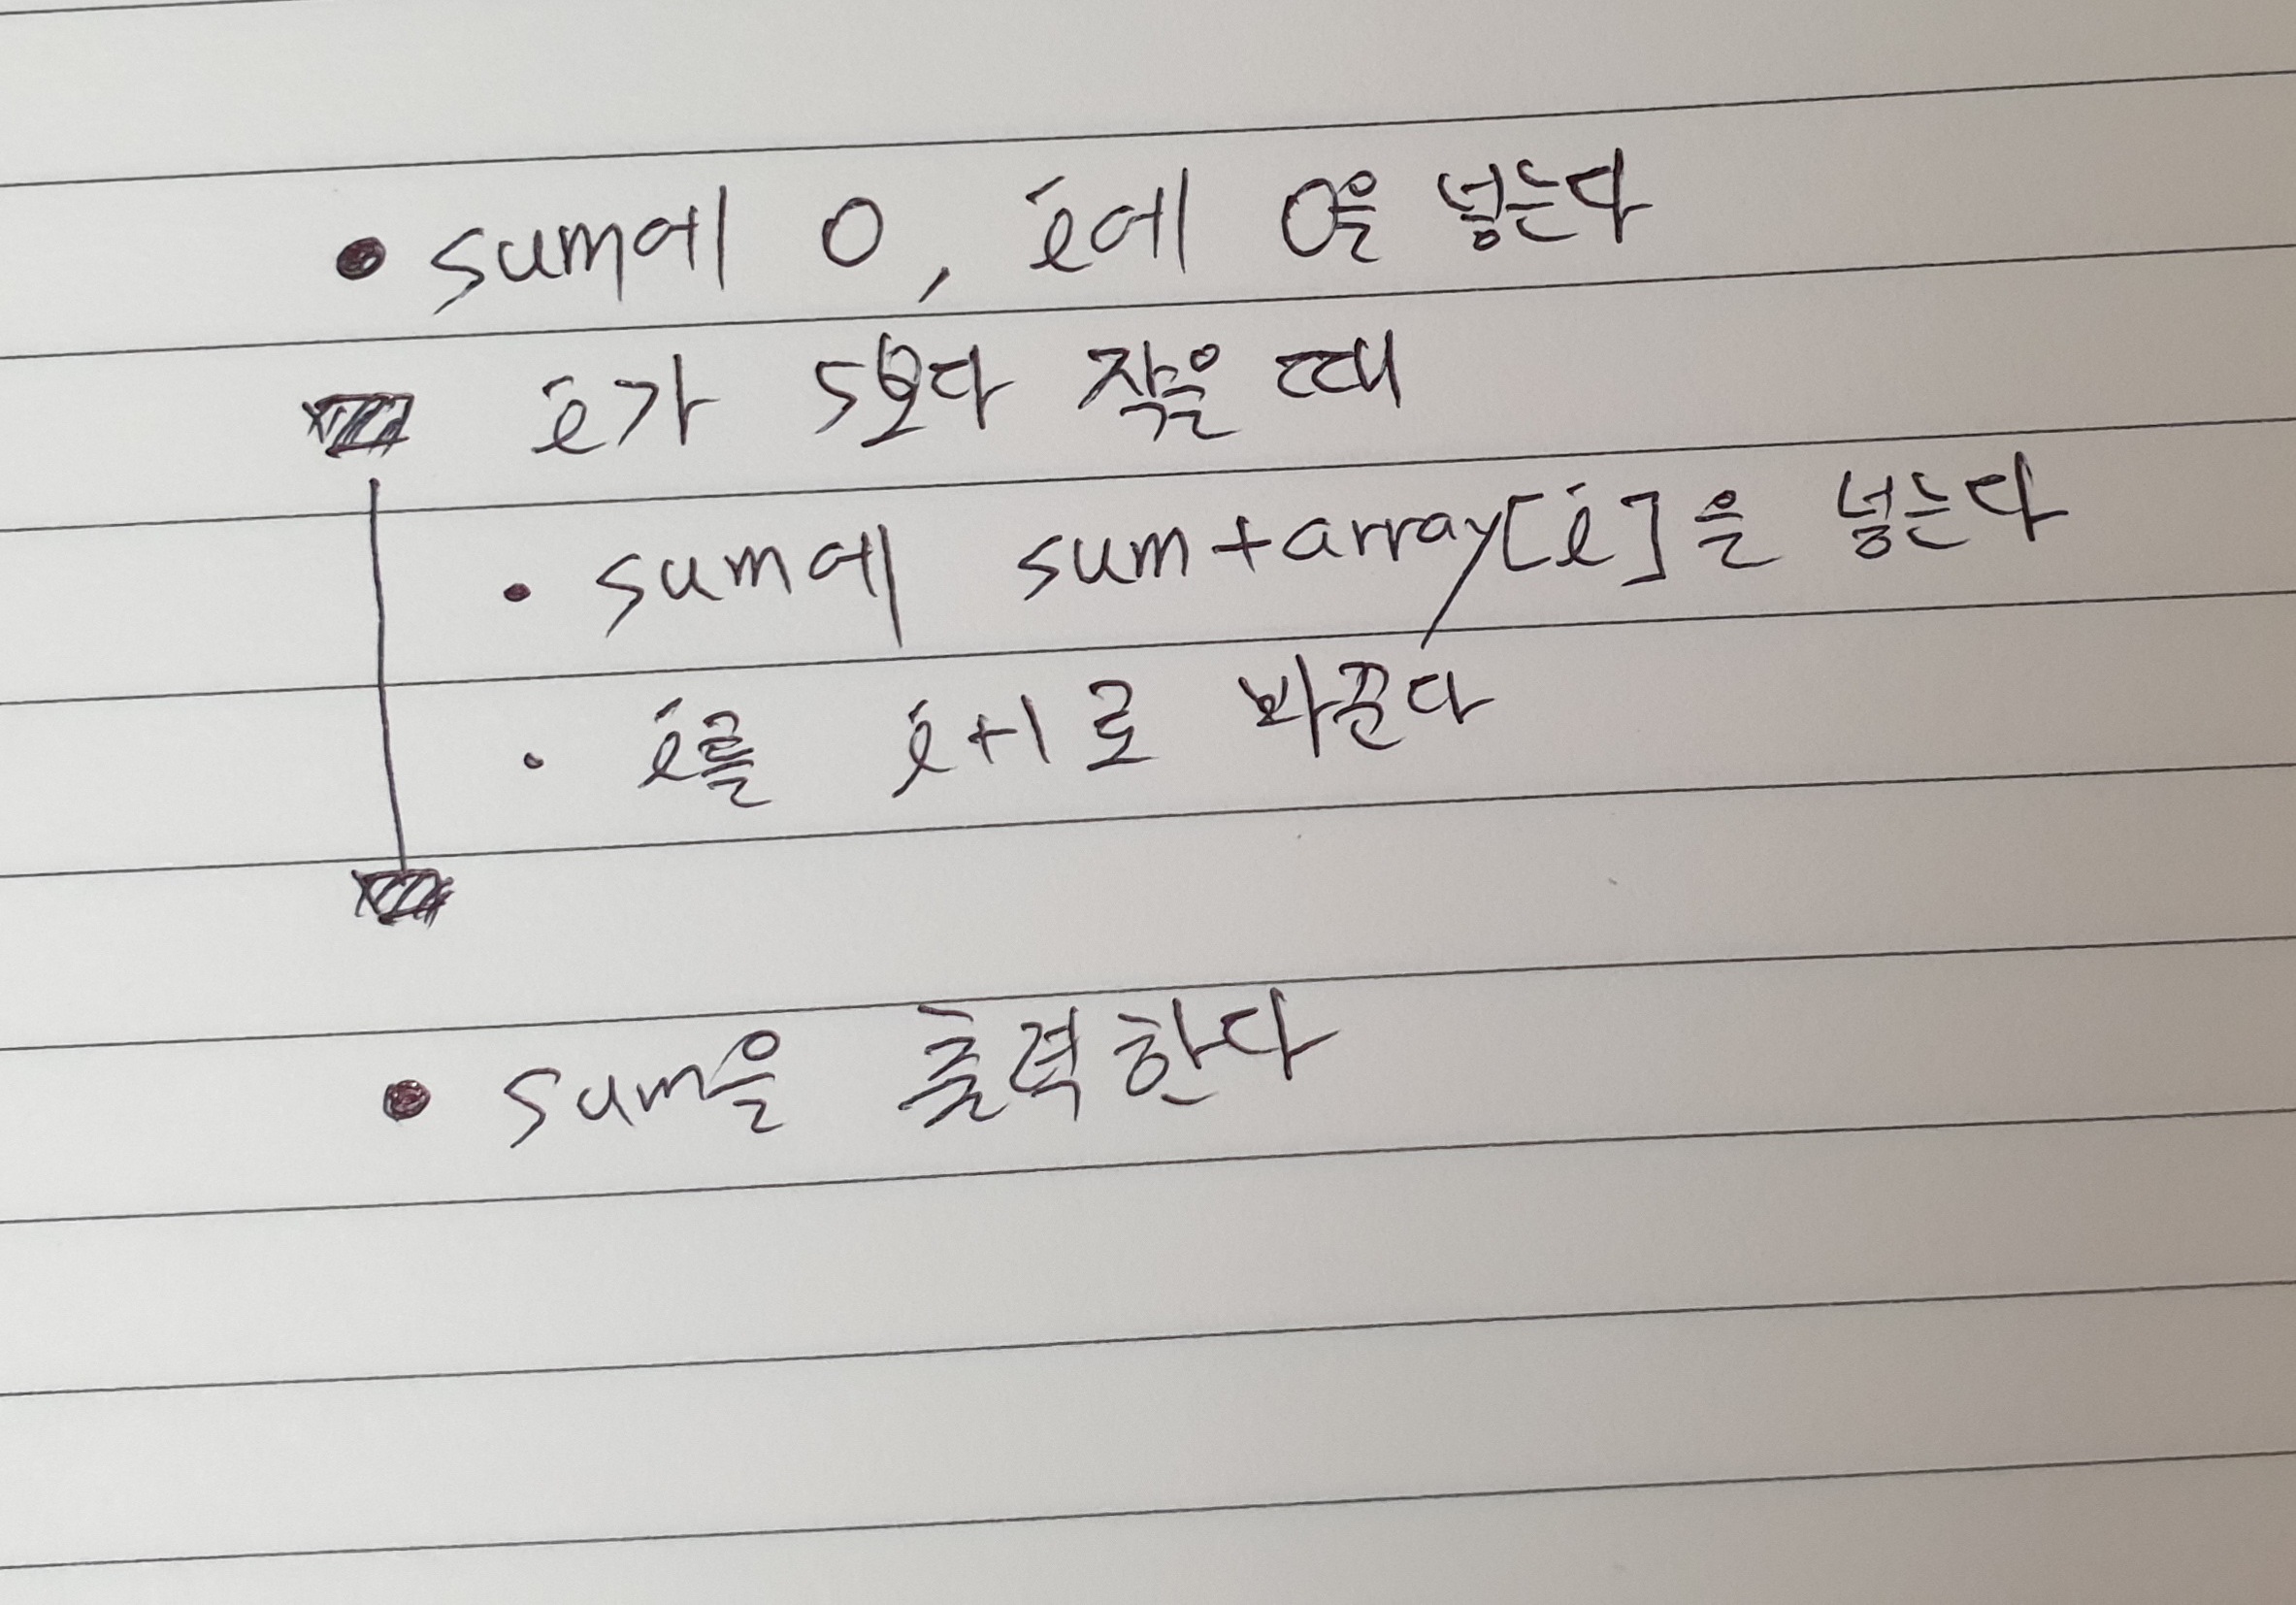 • sum에 0, i에 0을 넣는다
i가 5보다 작을 때
• sum에 sum+array[i]을 넣는다
• i를 i+1로 바꾼다
• sum을 출력한다